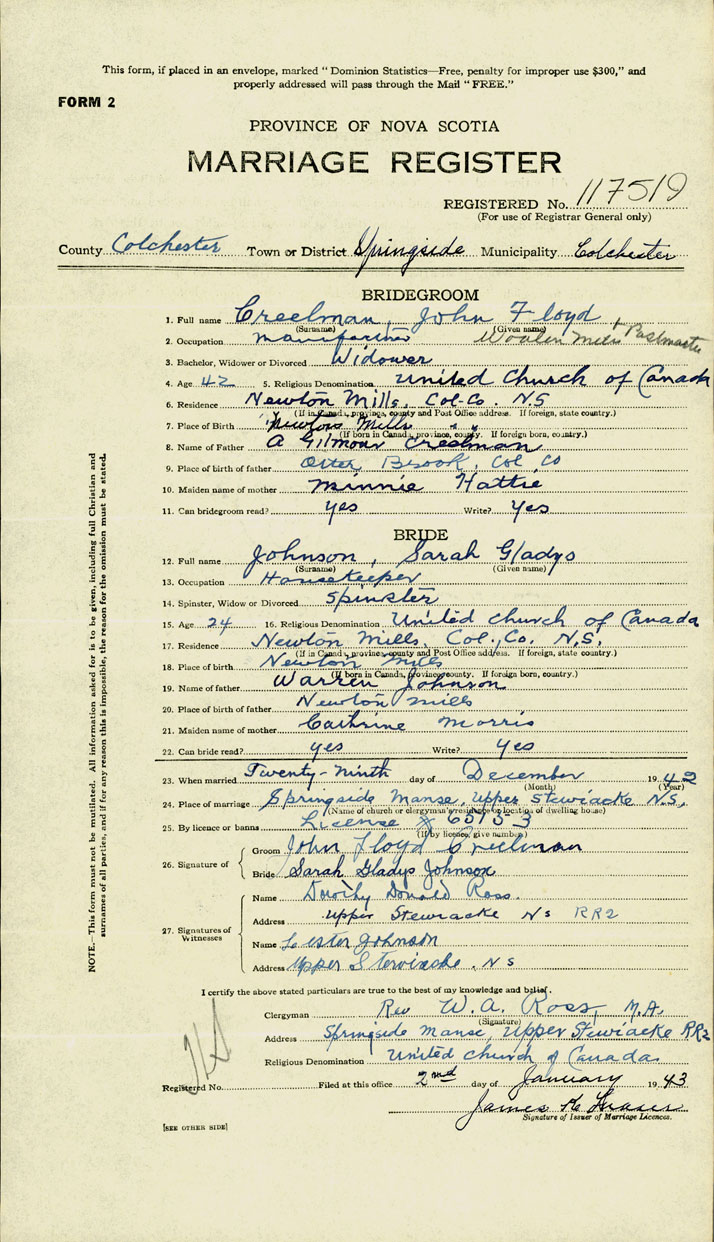 This form, if placed in an envelope, marked "Dominion Statistics—Free, penalty for improper use $300," and
properly addressed will pass through the Mail "FREE."
FORM 2
PROVINCE OF NOVA SCOTIA
MARRIAGE REGISTER
REGISTERED No. 117519
(For use of Registrar General only)
County Colchester Town or District Springside Municipality Colchester
BRIDEGROOM
1. Full name Creelman, John Floyd
(Surname) (Given name)
2. Occupation Woolen Mills + Postmaster
3. Bachelor, Widower or Divorced Widower
4. Age 42 5. Religious Denomination United Church of Canada
6. Residence Newton Mills, Col. Co. N.S
(If in Canada, province, county and Post Office address. If foreign, state country.)
7. Place of Birth Newton Mills " "
(If born in Canada, province, county. If foreign born, country.)
8. Name of Father A Gilmour Creelman
9. Place of birth of father Otter Brook, Col Co
10. Maiden name of mother Minnie Hattie
11. Can bridegroom read? yes Write? Yes
BRIDE
12. Full name Johnson, Sarah Gladys
(Surname) (Given name)
13. Occupation Housekeeper
14. Spinster, Widow or Divorced Spinster
15. Age 24 16. Religious Denomination United Church of Canada
17. Residence Newton Mills, Col., Co. N.S.
(If in Canada, province, county and Post Office address. If foreign, state country.)
18. Place of birth Newton Mills
(If born in Canada, province, county. If foreign born, country.)
19. Name of father Warren Johnson
20. Place of birth of father Newton Mills
21. Maiden name of mother Cathrine Morris
22. Can bride read? yes Write? Yes
23. When married Twenty-Ninth day of December 1942
(Month) (Year)
24. Place of marriage Springside Manse, Upper Stewiacke N.S.
(Name of church or clergyman's residence or location of dwelling house)
25. By licence or banns License
(If by licence, give number)
26. Signature of
Groom John Floyd Creelman
Bride Sarah Gladys Johnson
27. Signatures of Witnesses
Name Dorothy Donald Ross.
Address Upper Stewiacke NS RR2
Name Lester Johnson
Address Upper Stewiacke. N S
I certify the above stated particulars are true to the best of my knowledge and belief.
Clergyman Rev W. A. Ross, M.A.
(Signature)
Address Springside Manse, Upper Stewiacke RR2
Religious Denomination United Church of Canada
Registered No. Filed at this office 2nd day of January 1943
James Fraser
Signature of Issuer of Marriage Licences.
[SEE OTHER SIDE]
NOTE.—This form must not be mutilated. All information asked for is to be given, including full Christian and
surnames of all parties, and if for any reason this is impossible, the reason for the omission must be stated.